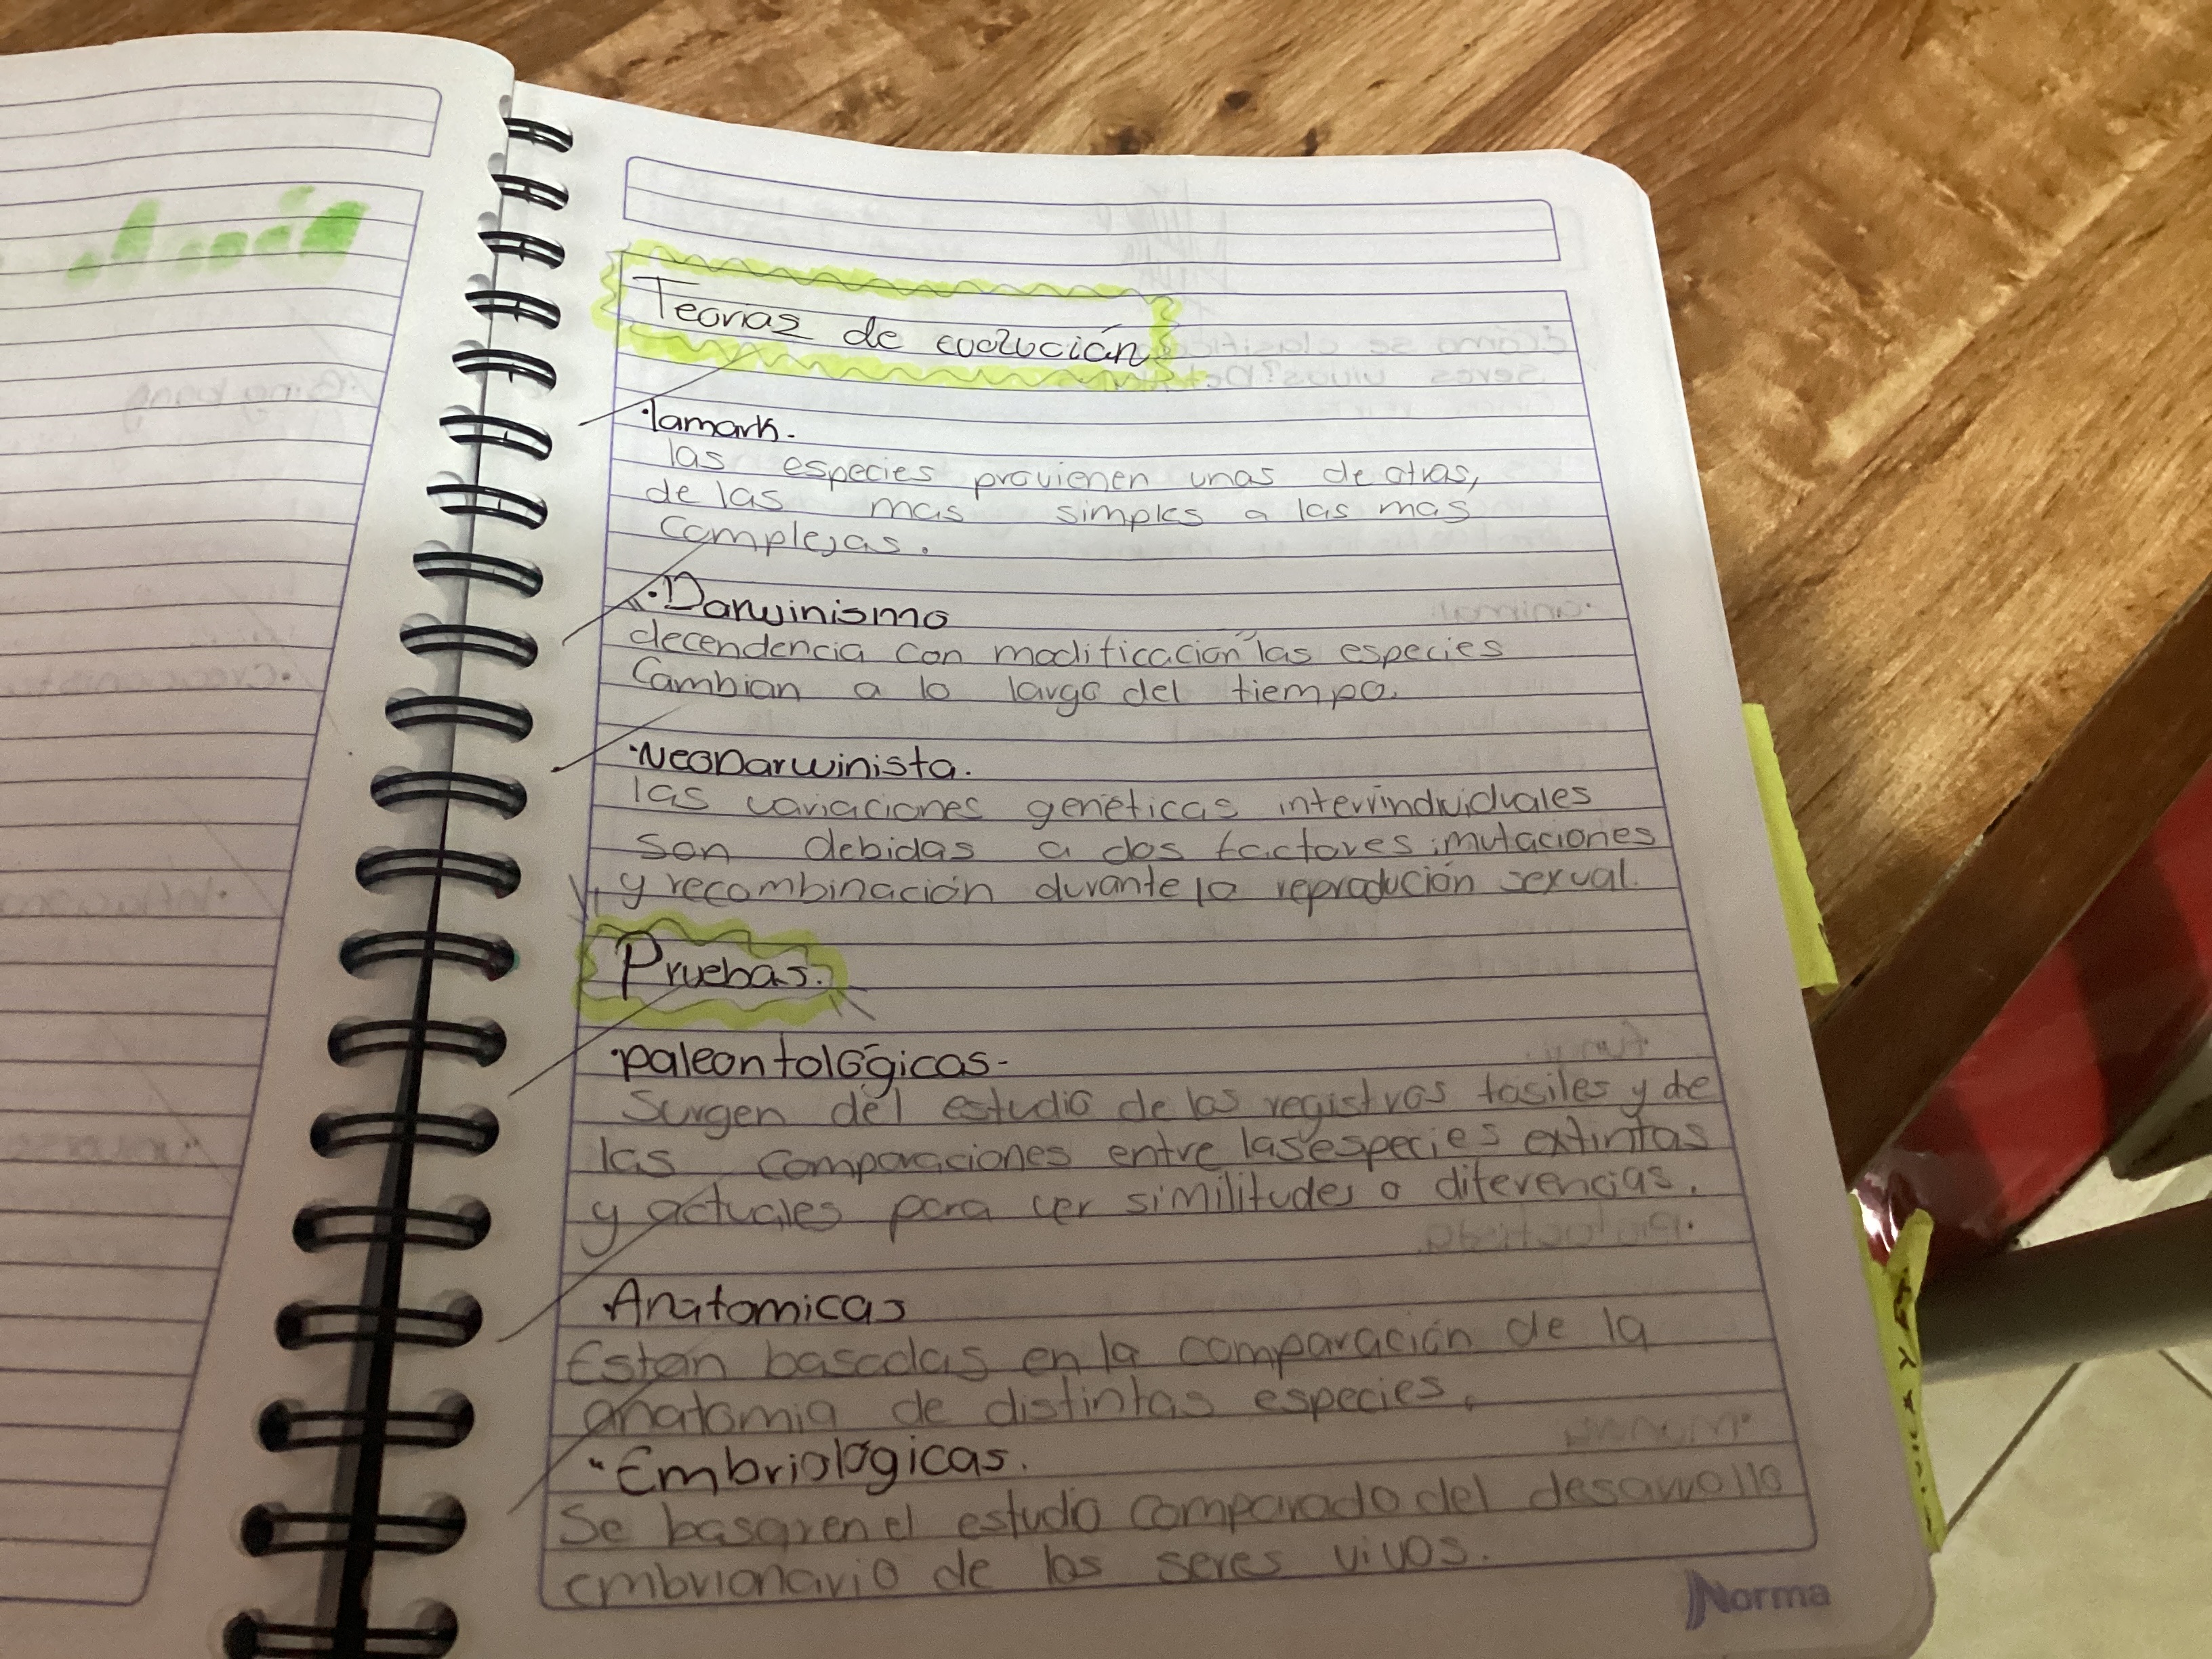 Teorias de evolución
·lamark.
las especies provienen unas de otras,
de las mas simples a las mas
complejas.
·Darwinismo
decendencia con modificación las especies
Cambian a lo largo del tiempo.
·NeoDarwinista.
las variaciones genéticas interindividuales
son debidas a dos factores: mutaciones
y recombinación durante la reprodución sexual.
Pruebas.
·paleontológicas-
Surgen del estudio de los registros fosiles y de
las comparaciones entre las especies extintas
y actuales para ver similitudes o diferencias.
·Anatomicas
Estan basadas en la comparación de la
anatomia de distintas especies.
·Embriológicas.
Se basan en el estudio comparado del desarrollo
embrionario de los seres vivos.
Norma